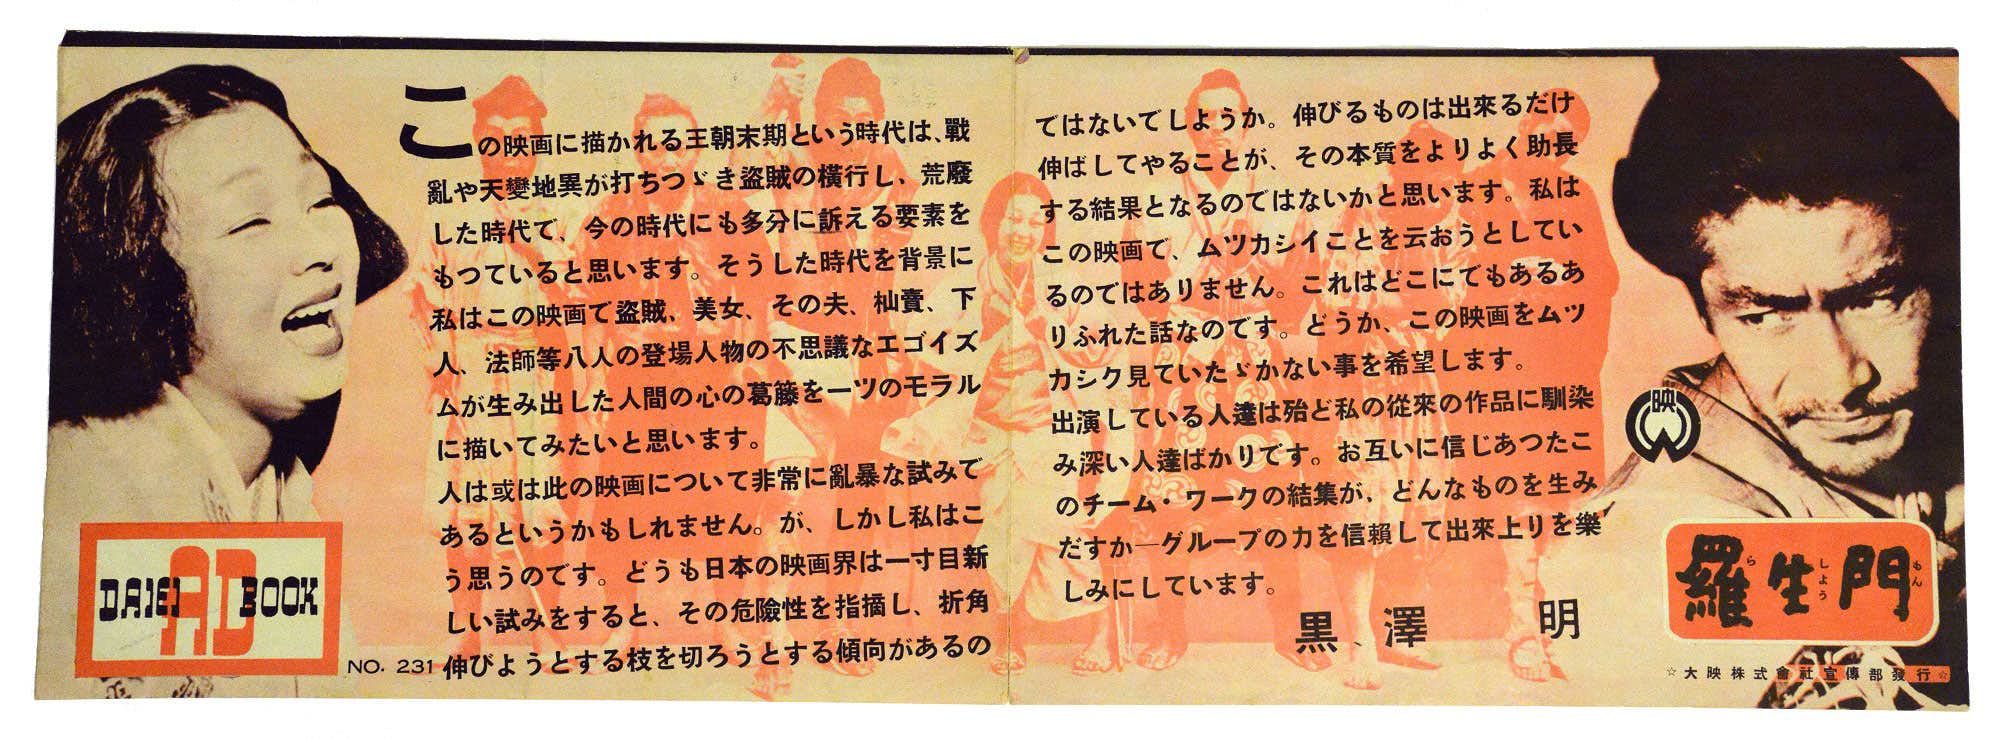 この映画に描かれる王朝末期という時代は、戰
亂や天變地異が打ちつゞき盗賊の横行し、荒廢
した時代で、今の時代にも多分に訴える要素を
もつていると思います。そうした時代を背景に
私はこの映画で盗賊、美女、その夫、杣賣、下
人、法師等八人の登場人物の不思議なエゴイズ
ムが生み出した人間の心の葛籐を一ツのモラル
に描いてみたいと思います。
人は或は此の映画について非常に亂暴な試みで
あるというかもしれません。が、しかし私はこ
う思うのです。どうも日本の映画界は一寸目新
しい試みをすると、その危險性を指摘し、折角
伸びようとする枝を切ろうとする傾向があるの
ではないでしようか。伸びるものは出來るだけ
伸ばしてやることが、その本質をよりよく助長
する結果となるのではないかと思います。私は
この映画で、ムツカシイことを云おうとしてい
るのではありません。これはどこにでもあるあ
りふれた話なのです。どうか、この映画をムツ
カシク見ていたゞかない事を希望します。
出演している人達は殆ど私の從來の作品に馴染
み深い人達ばかりです。お互いに信じあつたこ
のチーム・ワークの結集が、どんなものを生み
だすか―グループの力を信賴して出來上りを樂
しみにしています。
黒澤 明
DAIEI AD BOOK
NO. 231
映
羅生門
ら しよう もん
☆大映株式會社宣傳部發行☆